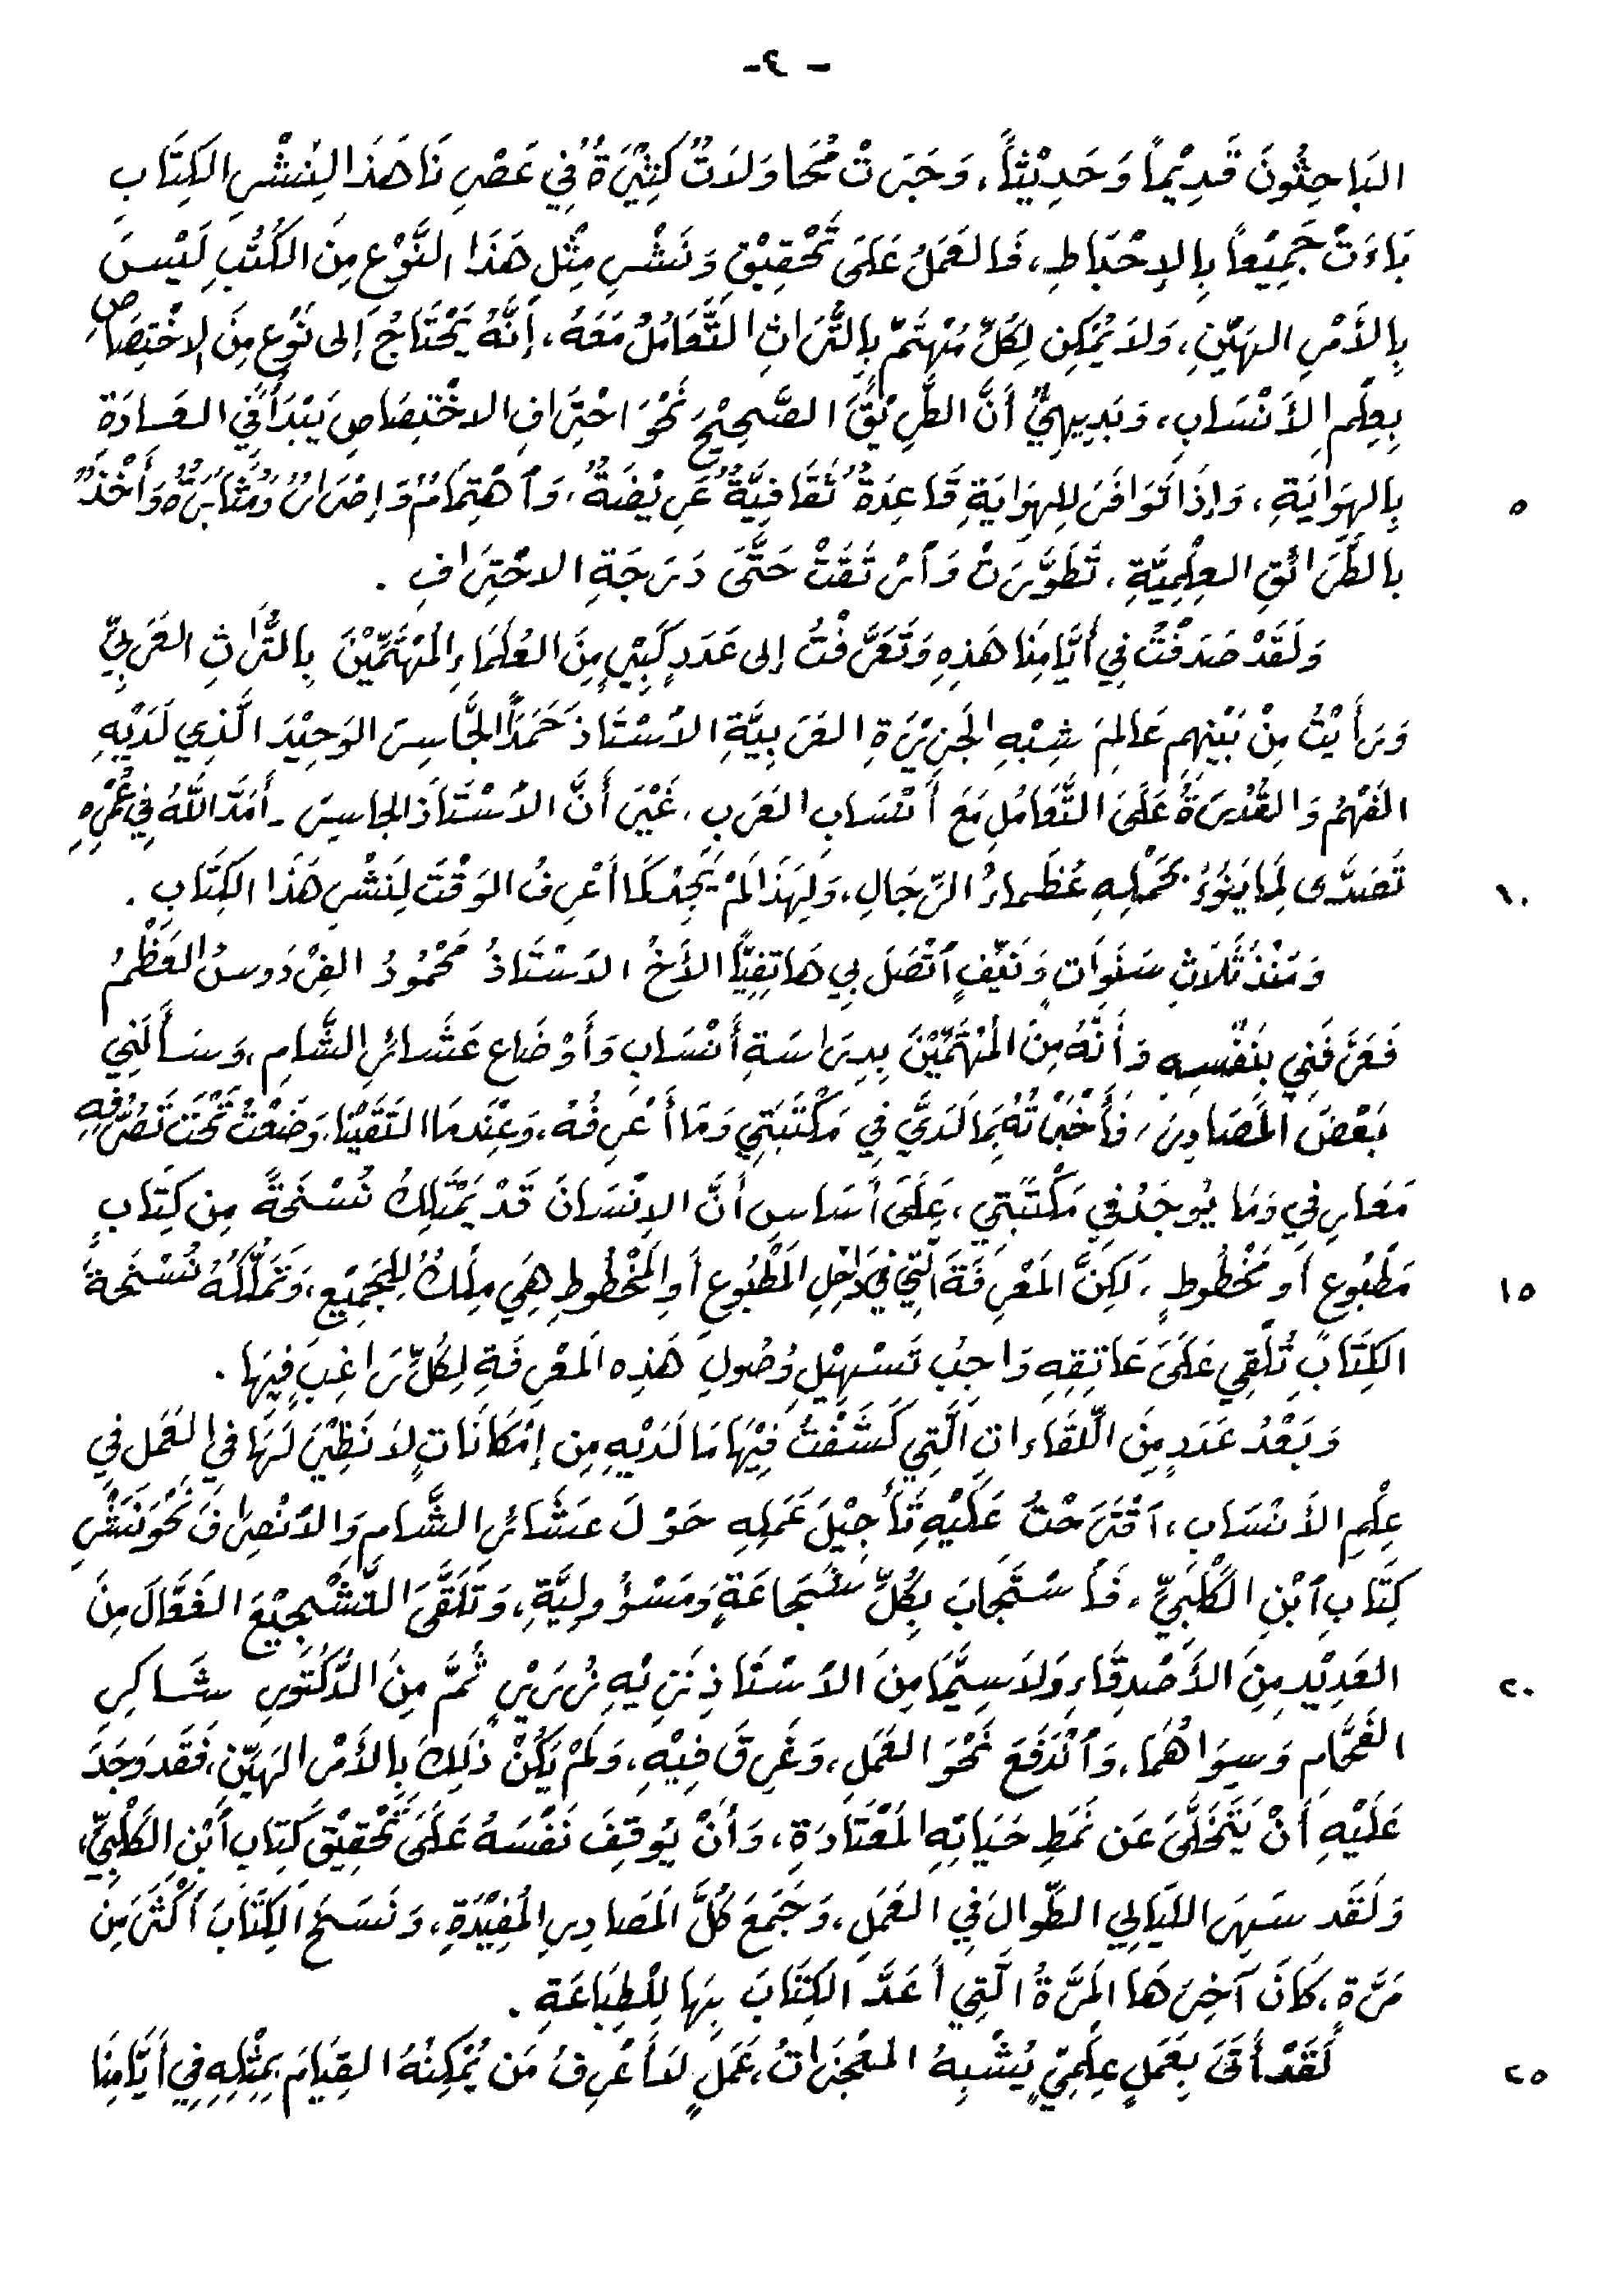 - و -
البَاحِثُونَ قَدِيْماً وَحَدِيْثاً، وَجَرَتْ مُحَاوَلَاتٌ كَثِيْرَةٌ فِي عَصْرِنَا هَذَا لِنَشْرِ الكِتَابِ
بَاءَتْ جَمِيْعاً بِالإِحْبَاطِ، فَالعَمَلُ عَلَى تَحْقِيْقِ وَنَشْرِ مِثْلِ هَذَا النَّوْعِ مِنَ الكُتُبِ لَيْسَ
بِالأَمْرِ الهَيِّنِ، وَلَا يُمْكِن لِكُلِّ مُهْتَمٍّ بِالتُّرَاثِ التَّعَامُلُ مَعَهُ، إِنَّهُ يَحْتَاجُ إِلى نَوْعٍ مِنَ الاخْتِصَاصِ
بِعِلْمِ الأَنْسَابِ، وَبَدِيهِيٌّ أَنَّ الطَّرِيْقَ الصَّحِيْحَ نَحْوَ احْتِرَافِ الاخْتِصَاصِ يَبْدَأُ فِي العَادَةِ
بِالهِوَايَةِ، وَإِذَا تَوَافَرَ لِلهِوَايَةِ قَاعِدَةٌ ثَقَافِيَّةٌ عَرِيْضَةٌ، وَآهْتِمَامٌ وَإِصْرَارٌ وَمُثَابَرَةٌ وَأَخْذٌ ٥
بالطَّرَائِقِ العِلْمِيَّةِ، تَطَوَّرَتْ وَآرْتَقَتْ حَتَّى دَرَجَةِ الاحْتِرَافِ .
وَلَقَدْ صَدَفْتُ فِي أَيَّامِنَا هَذِهِ وَتَعَرَّفْتُ إلى عَدَدٍ كَبِيْرٍ مِنَ العُلَمَاءِ المُهْتَمِّيْنَ بِالتُّرَاثِ العَرَبِيِّ
وَرَأَيْتُ مِنْ بَيْنِهِم عَالِمَ شِبْهِ الجَزِيْرَةِ العَرَبِيَّةِ الأسْتَاذَ حَمَدَاً الجَاسِرَ الوَحِيْدَ الَّذِي لَدَيْهِ
الفَهْمُ وَالقُدْرَةُ عَلَى التَّعَامُلِ مَعَ أَنْسَابِ العَرَبِ، غَيْرَ أَنَّ الأسْتَاذَ الجاسِرَ - أَمَدَّ اللَّهُ فِي عُمْرِهِ
تَصَدَّى لِمَا يَنُوْءُ بِحَمْلِهِ عُظَمَاءُ الرِّجَالِ، وَلِهَذَا لَمْ يَجِدْ كَمَا أَعْرِفُ الوَقْتَ لِنَشْرِ هَذَا الكِتَابِ . ١٠
وَمُنْذُ ثَلَاثِ سَنَوَاتٍ وَنَيِّفٍ آتَّصَلَ بِي هَاتِفِيَّاً الأَخُ الأسْتَاذُ مَحْمُودُ الفِرْدَوسُ العَظْمُ
فَعَرَّفَنِي بِنَفْسِهِ وَأَنَّهُ مِنَ المُهْتَمِّيْنَ بِدِرَاسَةِ أَنْسَابِ وَأَوْضَاعِ عَشَائِرِ الشَّامِ، وَسَأَلَنِي
بَعْضَ المَصَادِرِ، فَأَخْبَرْتُهُ بِمَا لَدَيَّ فِي مَكْتَبَتِي وَمَا أَعْرِفُهُ، وَعِنْدَمَا التَقَيْنَا، وَضَعْتُ تَحْتَ تَصَرُّفِهِ
مَعَارِفِي وَمَا يُوجَدُ فِي مَكْتَبَتِي، عَلَى أَسَاسِ أَنَّ الإِنْسَانَ قَدْ يَمْتَلِكُ نُسْخَةً مِن كِتَابٍ
مَطْبُوعٍ أَو مَخْطُوطٍ، لَكِنَّ المَعْرِفَةَ الَّتِي فِي دَاخِلِ المَطْبُوعِ أَوِ المَخْطُوطِ هِيَ مِلْكٌ لِلجَمِيْعِ، وَتَمَلُّكُهُ نُسْخَةَ ١٥
الكِتَابِ تُلْقِي عَلَى عَاتِقِهِ وَاجِبَ تَسْهِيْلِ وُصُولِ هَذِهِ المَعْرِفَةِ لِكُلِّ رَاغِبٍ فِيهَا .
وَبَعْدُ عَدَدٍ مِنَ اللِّقَاءاتِ الَّتِي كَشَفْتُ فِيْهَا مَا لَدَيْهِ مِن إِمْكَانَاتٍ لَا نَظِيْرَ لَهَا فِي العَمَلِ فِي
عِلْمِ الأَنْسَابِ، آقْتَرَحْتُ عَلَيْهِ تَأْجِيْلَ عَمَلِهِ حَوْلَ عَشَائِرِ الشَّامِ وَالانْصِرَافَ نَحْوَ نَشْرِ
كِتَابِ آبْنِ الكَلْبِيِّ، فَآسْتَجَابَ بِكُلِّ شَجَاعَةٍ وَمَسْؤُولِيَّةٍ، وَتَلَقَّى التَّشْجِيْعَ الفَعَّالَ مِنَ
العَدِيْدِ مِنَ الأَصْدِقَاءِ وَلَا سِيَّمَا مِنَ الأسْتَاذِ نَزِيْهِ زُرَيْرٍ ثُمَّ مِنَ الدَّكْتُورِ شَاكِرِ ٢٠
الفَحَّامِ وَسِوَاهُمَا، وَآنْدَفَعَ نَحْوَ العَمَلِ، وَغَرِقَ فِيْهِ، وَلَمْ يَكُنْ ذَلِكَ بِالأَمْرِ الهَيِّنِ، فَقَد وَجَدَ
عَلَيْهِ أَنْ يَتَخَلَّىَ عَن نَمَطِ حَيَاتِهِ المُعْتَادَةِ، وَأَنْ يُوقِفَ نَفْسَهُ عَلَى تَحْقِيْقِ كِتَابِ آبْنِ الكَلْبِيِّ،
وَلَقَد سَهِرَ اللَّيَالِي الطِّوالَ فِي العَمَلِ، وَجَمَعَ كُلَّ المَصَادِرِ المُفِيْدَةِ، وَنَسَخَ الكِتَابَ أَكْثَرَ مِن
مَرَّةٍ، كَانَ آخِرَهَا المَرَّةُ الَّتِي أَعَدَّ الكِتَابَ بِهَا لِلْطِبَاعَةِ .
لَقَدْ أَتَى بِعَمَلٍ عِلْمِيٍّ يُشْبِهُ المعْجِزَاتُ، عَمَلٍ لَا أَعْرِفُ مَن يُمْكِنُهُ القِيَامَ بِمِثْلِهِ فِي أَيَّامِنَا ٢٥